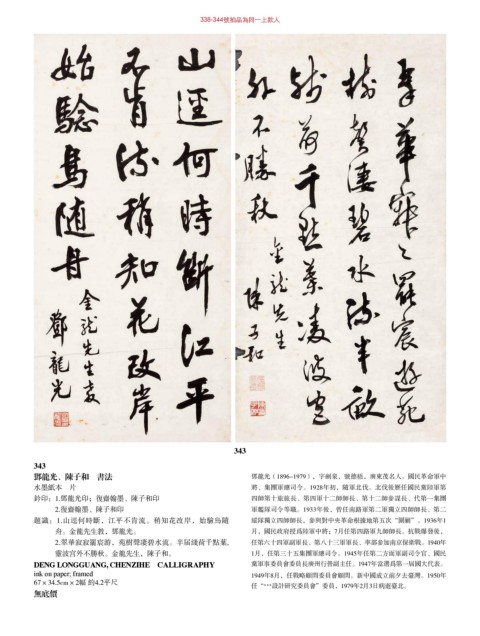 338-344號拍品為同一上款人
山逕何時斷江平
不肯流稍知花改岸
始驗鳥随舟
金龍先生教
鄧龍光
翠華寂寂罷宸遊苑
樹聲淒碧水流半畝
殘荷千點葉凌波宮
外不勝秋
金龍先生
陳子和
343
343
鄧龍光、陳子和 書法
水墨紙本 片
鈐印：1.鄧龍光印；復齋翰墨、陳子和印
2.復齋翰墨、陳子和印
題識：1.山逕何時斷，江平不肯流。稍知花改岸，始驗鳥隨
舟。金龍先生教，鄧龍光。
金龍先生，陳子和。
DENG LONGGUANG, CHENZIHE CALLIGRAPHY
ink on paper; framed
67×34.5cm×2幅 約4.2平尺
無底價
鄧龍光（1896-1979），字劍泉，號德梧，廣東茂名人。國民革命軍中
將、集團軍總司令。1928年初，隨軍北伐。北伐後歷任國民黨陸軍第
四師第十旅旅長、第四軍十二師師長、第十二師參謀長、代第一集團
軍艦隊司令等職。1933年後，曾任南路軍第二軍獨立四師師長、第二
縱隊獨立四師師長。參與對中央革命根據地第五次“圍剿”。1936年1
月，國民政府授為陸軍中將；7月任第四路軍九師師長。抗戰爆發後，
任第六十四軍副軍長、第八十三軍軍長，率部參加南京保衛戰。1940年
1月，任第三十五集團軍總司令。1945年任第二方面軍副司令官、國民
黨軍事委員會委員長廣州行營副主任。1947年當選為第一屆國大代表。
1949年8月，任戰略顧問委員會顧問。新中國成立前夕去臺灣。1950年
任“***設計研究委員會”委員。1979年2月3日病逝臺北。